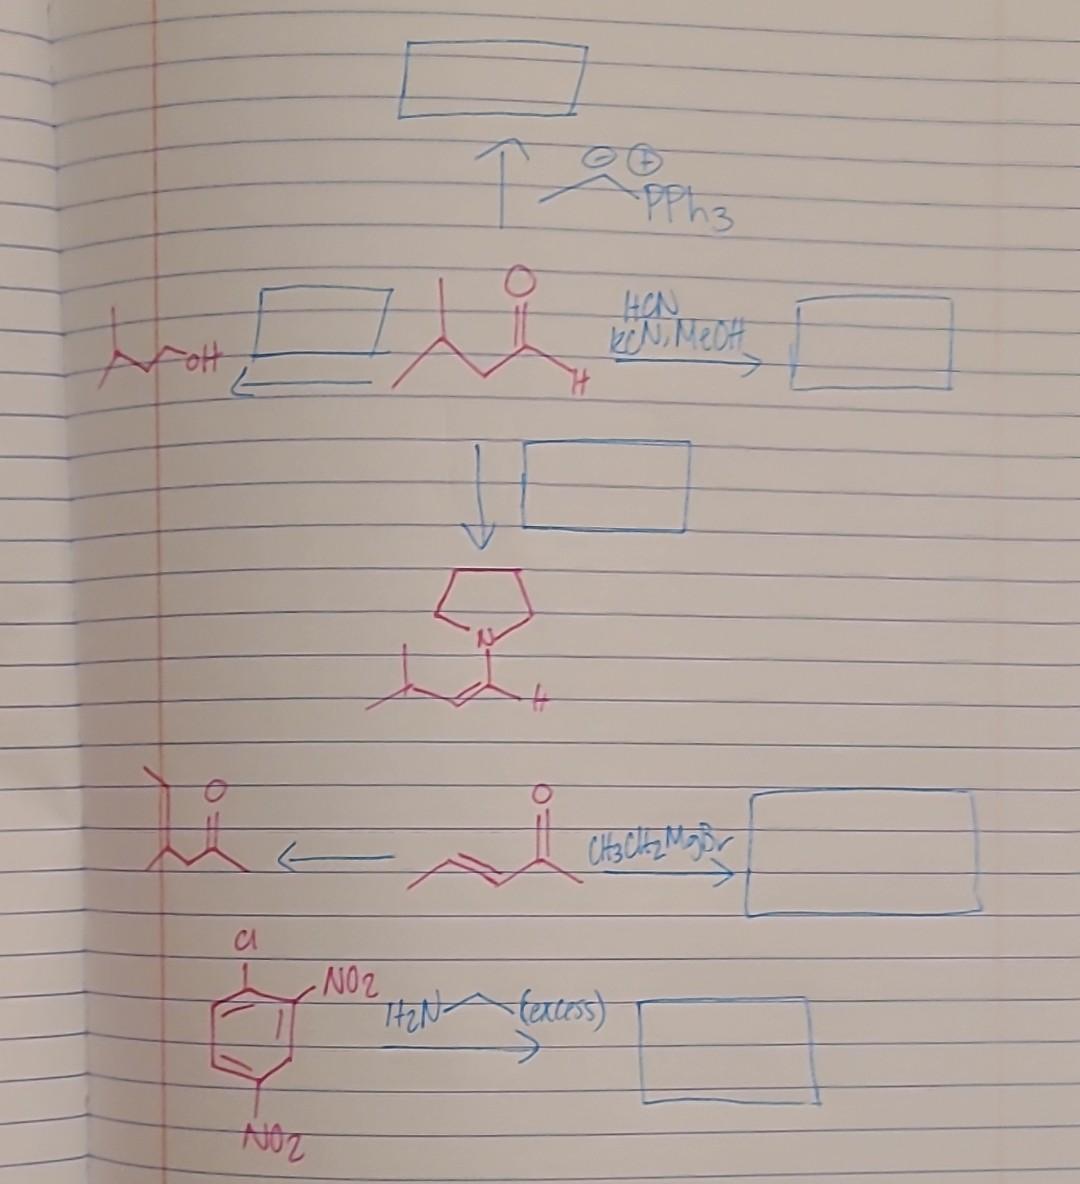 ⊖ ⊕
PPh3
O
HCN
KCN, MeOH
OH
H
N
H
O
O
CH3CH2MgBr
Cl
NO2
H2N (excess)
NO2